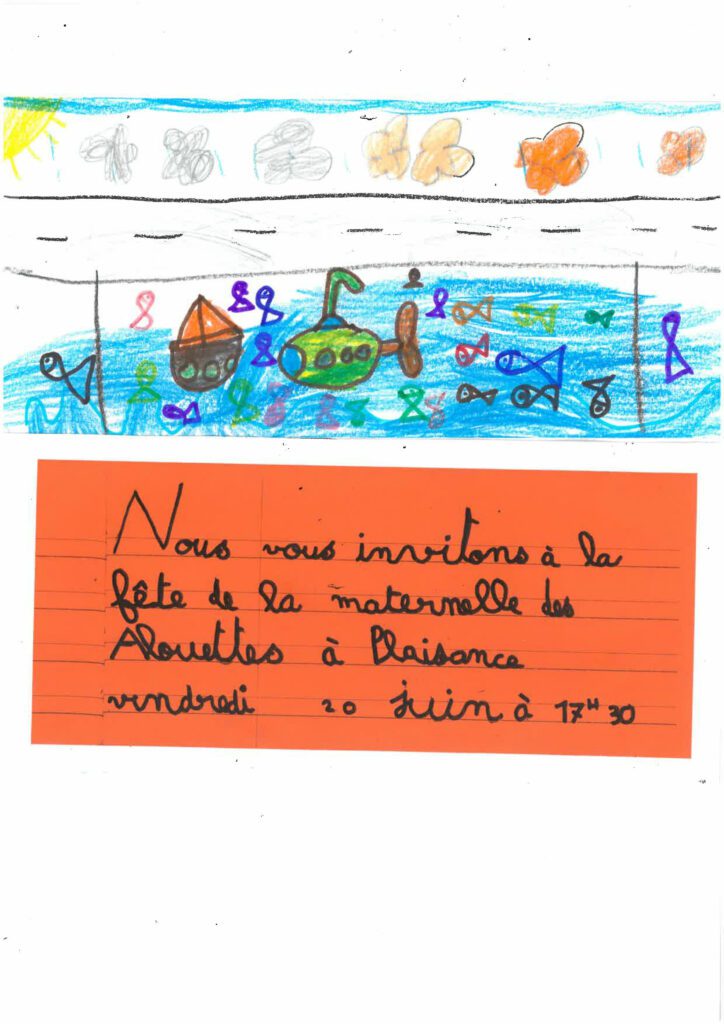 Nous vous invitons à la
fête de la maternelle des
Alouettes à Plaisance
vendredi 20 juin à 17H30